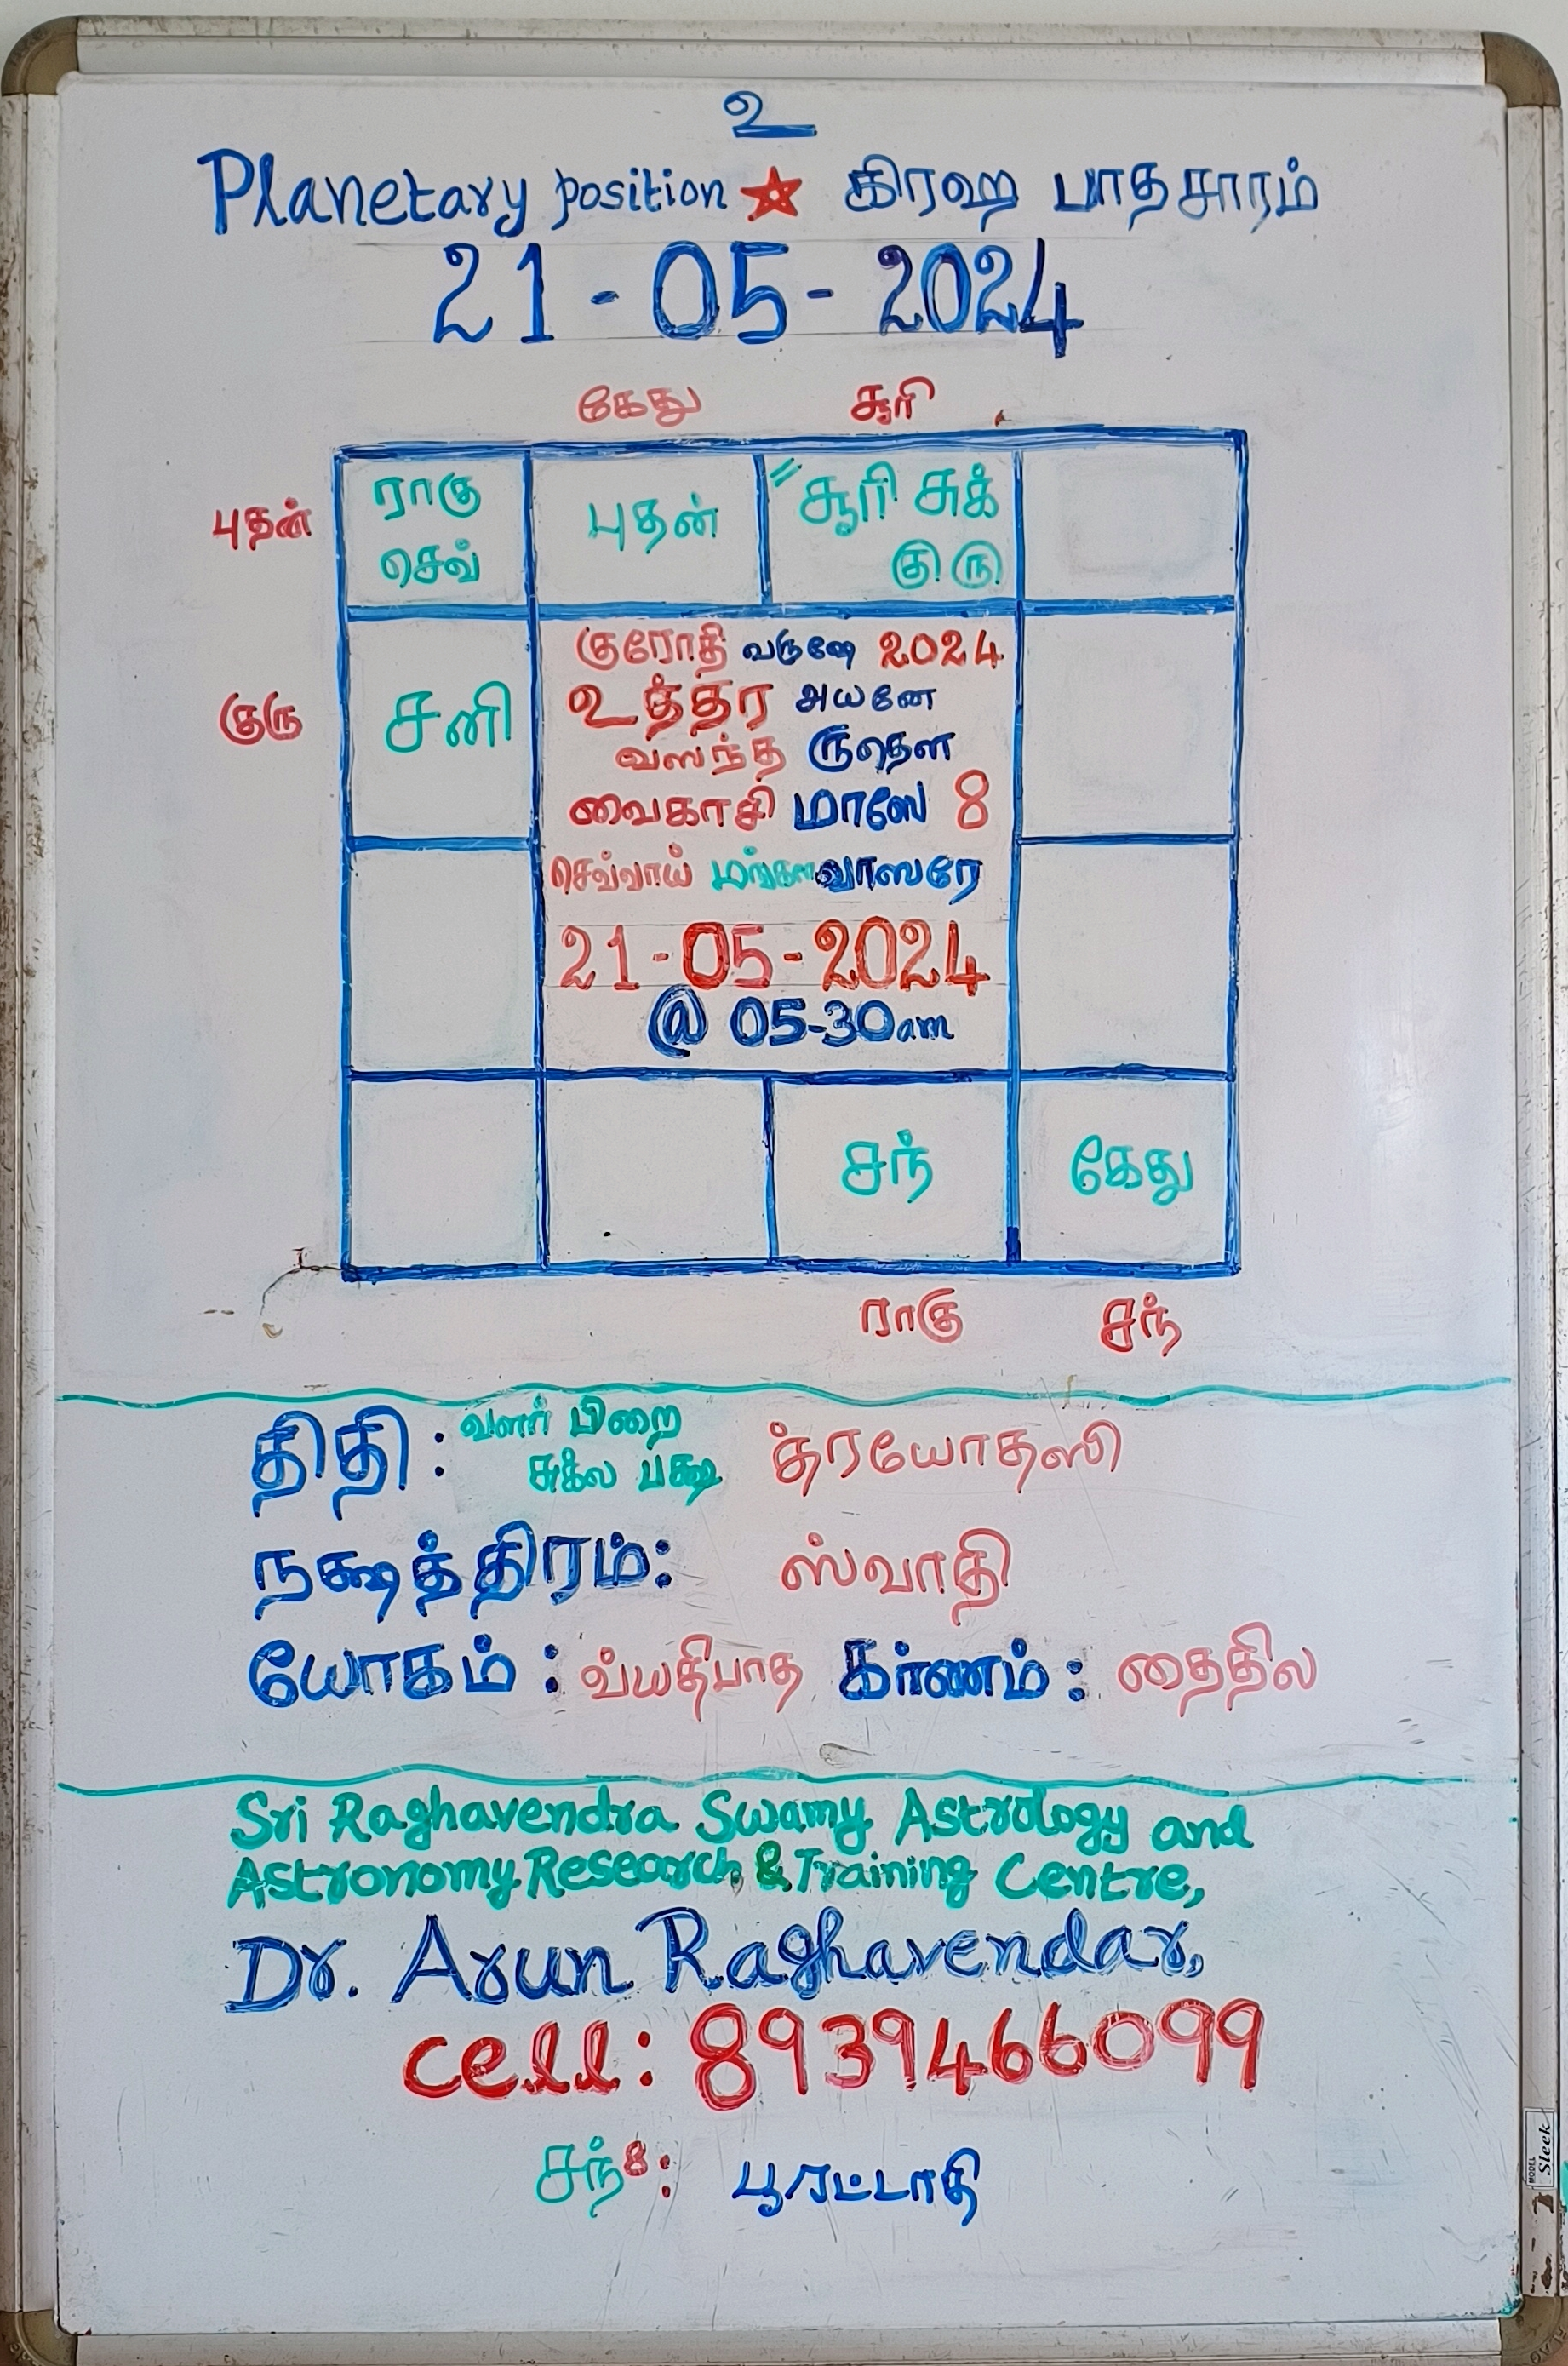 உ
Planetary position கிரஹ பாதசாரம்
21-05-2024
கேது சூரி
புதன் ராகு செவ் புதன் " சூரி சுக் குரு
குரோதி வருஷே 2024
குரு சனி உத்தர அயனே
வஸந்த ருதௌ
வைகாசி மாஸே 8
செவ்வாய் மங்கள வாஸரே
21-05-2024
@ 05-30am
சந் கேது
ராகு சந்
திதி: வளர் பிறை
சுக்ல பக்ஷ த்ரயோதஸி
நக்ஷத்திரம்: ஸ்வாதி
யோகம்: வ்யதிபாத கர்ணம்: தைதில
Sri Raghavendra Swamy Astrology and
Astronomy Research & Training Centre,
Dr. Arun Raghavendar,
cell: 8939466099
சந்8: பூரட்டாதி
MODEL
Sleek